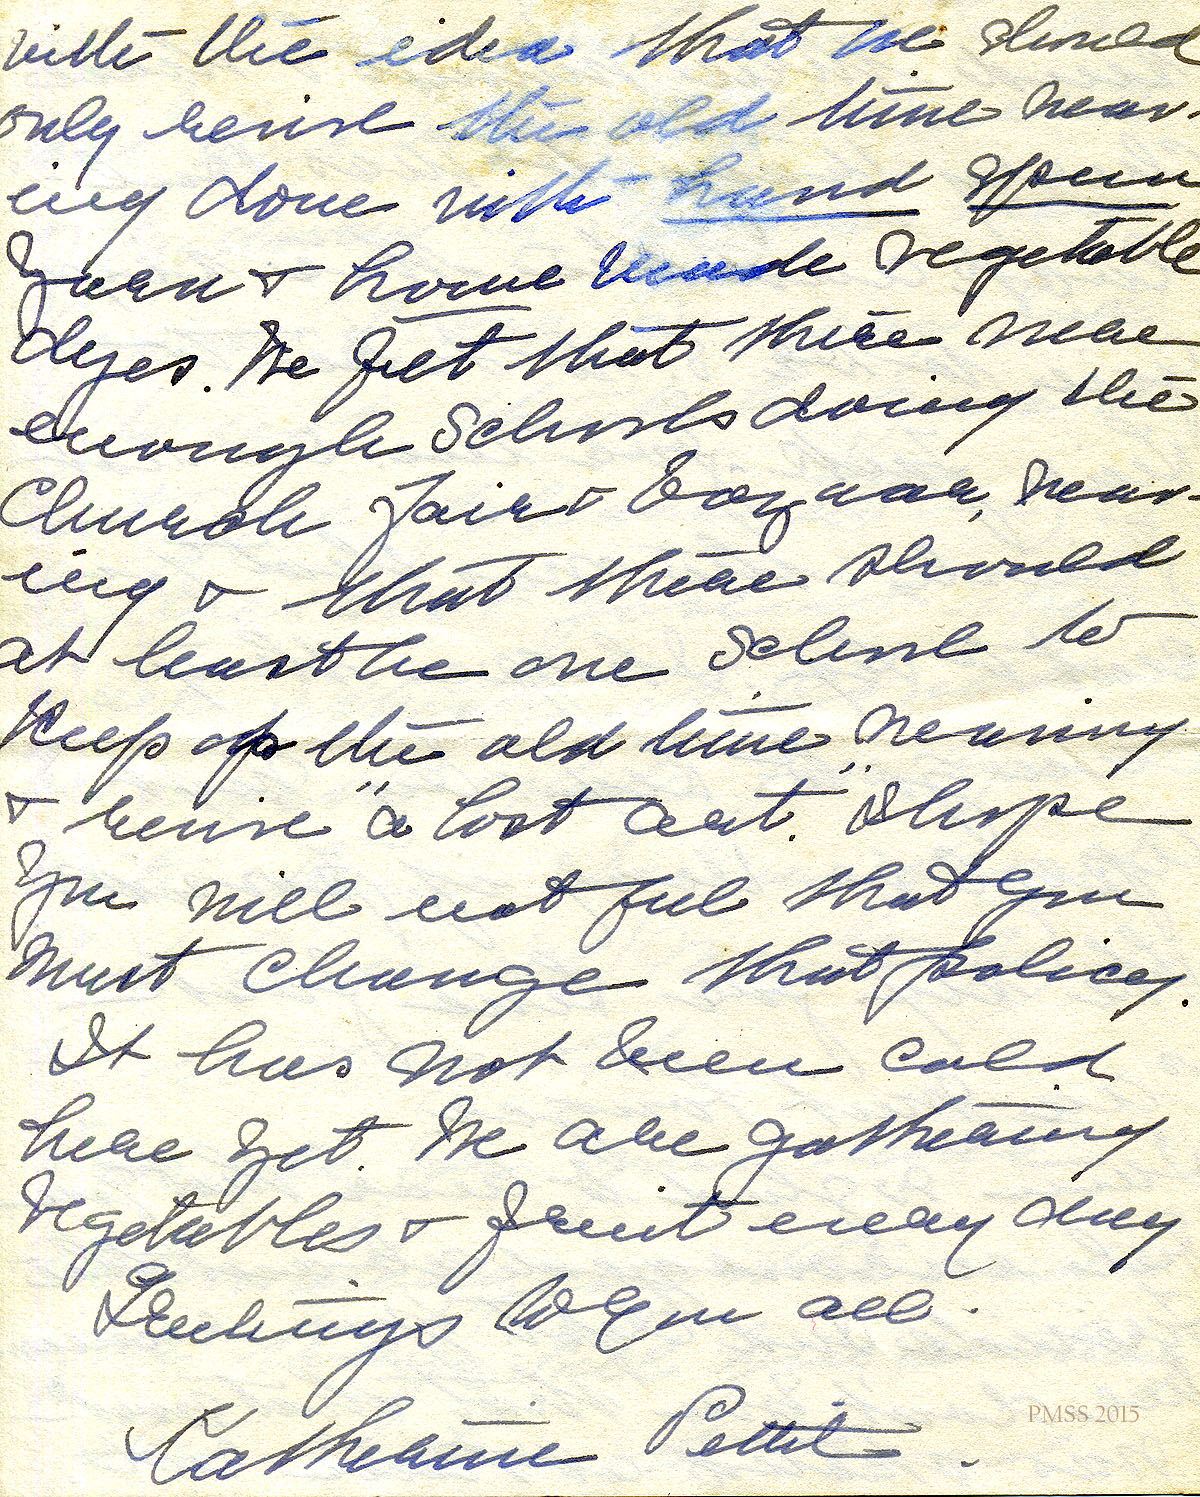 with the idea that we should
only revive the old time weav-
ing done with hand spun
yarn & home made vegetable
dyes. We felt that there were
enough schools doing the
Church fair & bazaar, weav-
ing & that there should
at least be one school to
keep up the old time weaving
& revive "a lost art." I hope
you will not feel that you
must change that policy.
It has not been cold
here yet. We are gathering
vegetables & fruit every day
Greetings to you all.
Katherine Pettit.
PMSS 2015